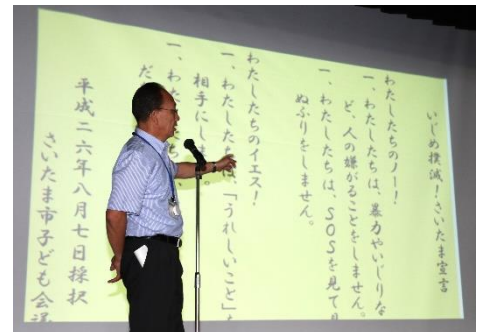 いじめ撲滅!さいたま宣言
わたしたちのノー!
一、わたしたちは、暴力やいじりな
ど、人の嫌がることをしません。
一、わたしたちは、SOSを見て見
ぬふりをしません。
わたしたちのイエス!
一、わたしたちは、「うれしいこと」を
相手にしま。
一、わたしたち
だ
平成二六年八月七日採択
さいたま市子ども会議